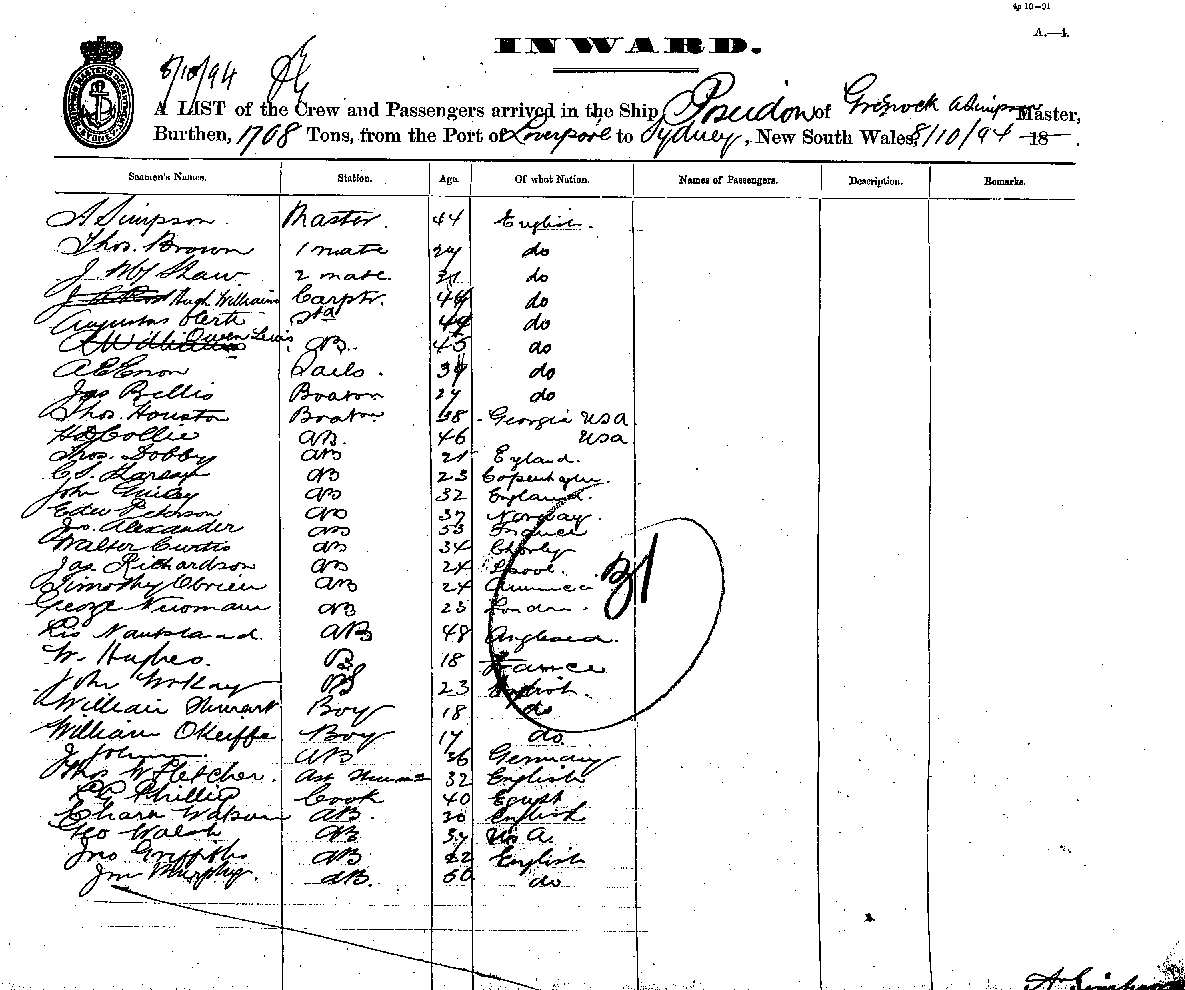 4p 10—91
A.—4.
INWARD.
8/10/94
A LIST of the Crew and Passengers arrived in the Ship Poseidon of Greenock A Simpson Master,
Burthen, 1708 Tons, from the Port of Liverpool to Sydney, New South Wales, 8/10/94 18
Seamen's Names. Station. Age. Of what Nation. Names of Passengers. Description. Remarks.
A Simpson. Master. 44 English.
Thos. Brown 1 mate do
Shaw 2 mate 31 do
Hugh Williams Carptr. do
Augustus do
Owen Lewis AB. 45 do
Sails. do
Jas Bellis Boatsn do
Thos. Houston Boatsn 38 Georgia USA
Collie AB. 46 USA
Thos. Dobby AB 21 England.
C.S. AB 23 Copenhagen.
John AB 32 England.
Peterson AB 37 Norway.
Jno. Alexander AB 53 France
Walter Curtis AB 34 Chorley
Jas Richardson AB 24 L'pool.
Timothy Obrien AB 24 America
George Newman AB 23 London.
AB 48
W. Hughes. 18 France
John McKay 23
William Stewart Boy 18 do
William OKeiffe Boy 17 do
J. AB 36 Germany
Thos W Fletcher. 32 English
Phillip Cook 40 Egypt
Watson AB. 30 English
Geo Walsh AB 37 U.S.A.
Jno Griffiths AB 22 English
Jno Murphy. AB. 50 do
31
A Simpson